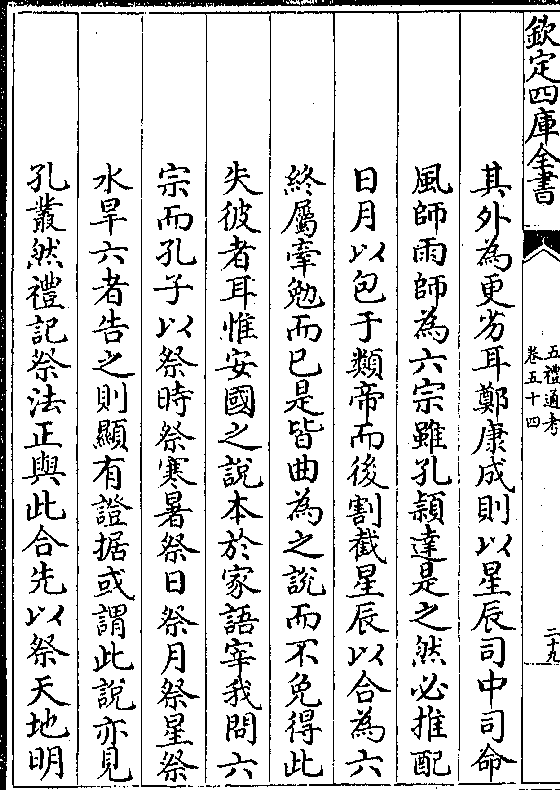 欽定四庫全書
五禮通考
卷五十四
二十九
其外為更劣耳鄭康成則以星辰司中司命
風師雨師為六宗雖孔穎達是之然必推配
日月以包于類帝而後割截星辰以合為六
終屬牽勉而已是皆曲為之說而不免得此
失彼者耳惟安國之說本於家語宰我問六
宗而孔子以祭時祭寒暑祭日祭月祭星祭
水旱六者告之則顯有證据或謂此說亦見
孔叢然禮記祭法正與此合先以祭天地明